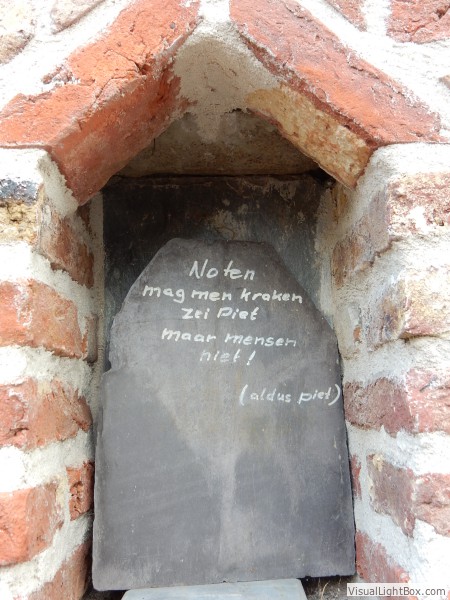 Noten
mag men kraken
zei Piet
maar mensen
niet!
(aldus piet)
VisualLightBox.com